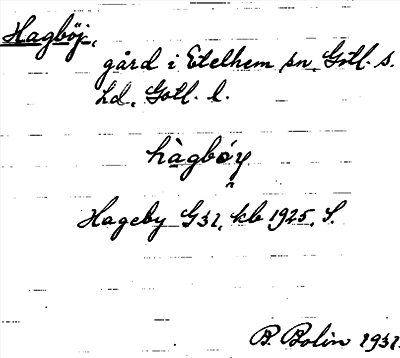 Hagböj,
gård i Etelhem sn, Gotl. s.
hd, Gotl. l.
hàgbóy
Hageby G 31, kb 1925. S.
B. Bolin 1931.